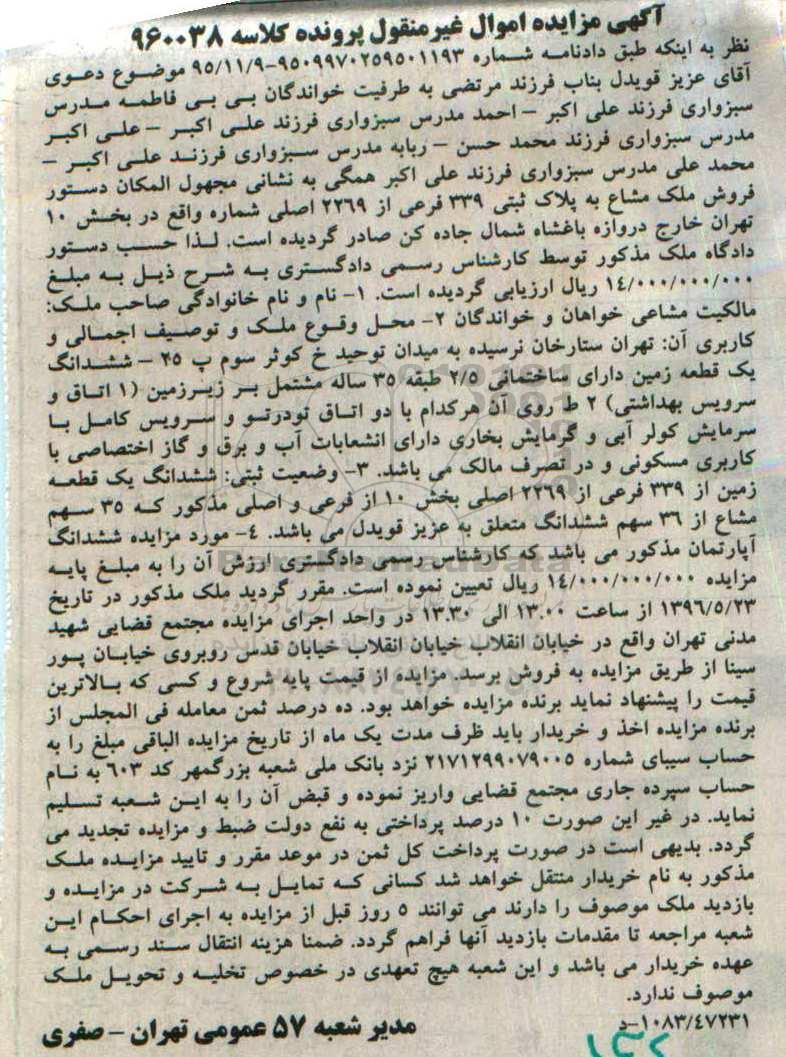 آگهی مزایده اموال غیرمنقول پرونده کلاسه ۹۶۰۰۳۸
نظر به اینکه طبق دادنامه شماره ۹۵۰۹۹۷۰۲۵۹۵۰۱۱۹۳-۹۵/۱۱/۹ موضوع دعوی
آقای عزیز قویدل بناب فرزند مرتضی به طرفیت خواندگان بی بی فاطمه مدرس
سبزواری فرزند علی اکبر – احمد مدرس سبزواری فرزند علی اکبر – علی اکبر
مدرس سبزواری فرزند محمد حسن – ربابه مدرس سبزواری فرزند علی اکبر –
محمد علی مدرس سبزواری فرزند علی اکبر همگی به نشانی مجهول المکان دستور
فروش ملک مشاع به پلاک ثبتی ۳۳۹ فرعی از ۲۲۶۹ اصلی شماره واقع در بخش ۱۰
تهران خارج دروازه باغشاه شمال جاده کن صادر گردیده است. لذا حسب دستور
دادگاه ملک مذکور توسط کارشناس رسمی دادگستری به شرح ذیل به مبلغ
۱۴/۰۰۰/۰۰۰/۰۰۰ ریال ارزیابی گردیده است. ۱- نام و نام خانوادگی صاحب ملک:
مالکیت مشاعی خواهان و خواندگان ۲- محل وقوع ملک و توصیف اجمالی و
کاربری آن: تهران ستارخان نرسیده به میدان توحید خ کوثر سوم پ ۲۵ – ششدانگ
یک قطعه زمین دارای ساختمانی ۲/۵ طبقه ۳۵ ساله مشتمل بر زیرزمین (۱ اتاق و
سرویس بهداشتی) ۲ ط روی آن هرکدام با دو اتاق تودرتو و سرویس کامل با
سرمایش کولر آبی و گرمایش بخاری دارای انشعابات آب و برق و گاز اختصاصی با
کاربری مسکونی و در تصرف مالک می باشد. ۳- وضعیت ثبتی: ششدانگ یک قطعه
زمین از ۳۳۹ فرعی از ۲۲۶۹ اصلی بخش ۱۰ از فرعی و اصلی مذکور که ۳۵ سهم
مشاع از ۳۶ سهم ششدانگ متعلق به عزیز قویدل می باشد. ۴- مورد مزایده ششدانگ
آپارتمان مذکور می باشد که کارشناس رسمی دادگستری ارزش آن را به مبلغ پایه
مزایده ۱۴/۰۰۰/۰۰۰/۰۰۰ ریال تعیین نموده است. مقرر گردید ملک مذکور در تاریخ
۱۳۹۶/۵/۲۳ از ساعت ۱۳.۰۰ الی ۱۳.۳۰ در واحد اجرای مزایده مجتمع قضایی شهید
مدنی تهران واقع در خیابان انقلاب خیابان انقلاب خیابان قدس روبروی خیابان پور
سینا از طریق مزایده به فروش برسد. مزایده از قیمت پایه شروع و کسی که بالاترین
قیمت را پیشنهاد نماید برنده مزایده خواهد بود. ده درصد ثمن معامله فی المجلس از
برنده مزایده اخذ و خریدار باید ظرف مدت یک ماه از تاریخ مزایده الباقی مبلغ را به
حساب سیبای شماره ۲۱۷۱۲۹۹۰۷۹۰۰۵ نزد بانک ملی شعبه بزرگمهر کد ۶۰۳ به نام
حساب سپرده جاری مجتمع قضایی واریز نموده و قبض آن را به این شعبه تسلیم
نماید. در غیر این صورت ۱۰ درصد پرداختی به نفع دولت ضبط و مزایده تجدید می
گردد. بدیهی است در صورت پرداخت کل ثمن در موعد مقرر و تایید مزایده ملک
مذکور به نام خریدار منتقل خواهد شد کسانی که تمایل به شرکت در مزایده و
بازدید ملک موصوف را دارند می توانند ۵ روز قبل از مزایده به اجرای احکام این
شعبه مراجعه تا مقدمات بازدید آنها فراهم گردد. ضمنا هزینه انتقال سند رسمی به
عهده خریدار می باشد و این شعبه هیچ تعهدی در خصوص تخلیه و تحویل ملک
موصوف ندارد.
۱۰۸۳/۴۷۲۳۱-د
مدیر شعبه ۵۷ عمومی تهران – صفری